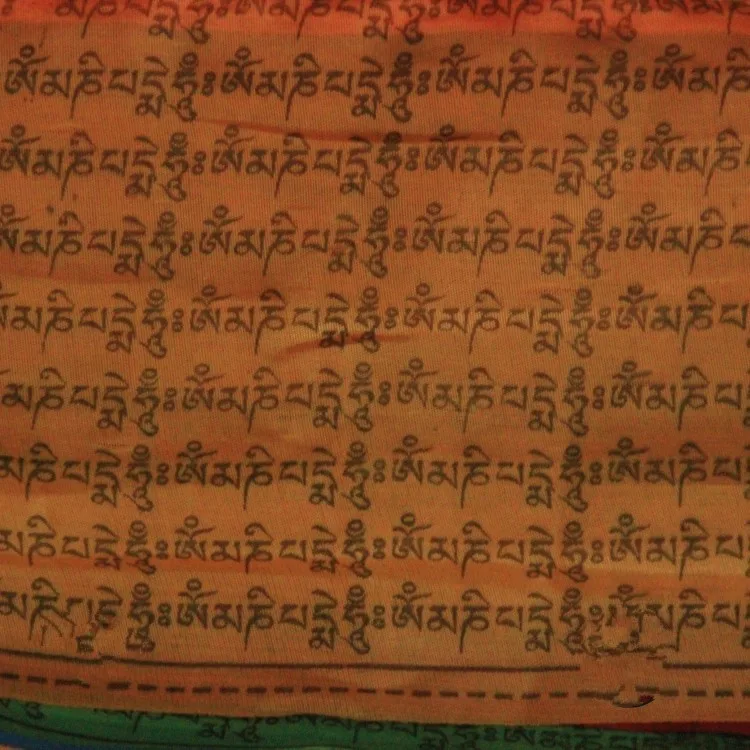 ཨོཾམཎིཔདྨེཧཱུྃ༔ཨོཾམཎིཔདྨེཧཱུྃ༔ཨོཾམཎིཔདྨེཧཱུྃ༔ཨོཾམཎི
ཨོཾམཎིཔདྨེཧཱུྃ༔ཨོཾམཎིཔདྨེཧཱུྃ༔ཨོཾམཎིཔདྨེཧཱུྃ༔ཨོཾམཎི
ཨོཾམཎིཔདྨེཧཱུྃ༔ཨོཾམཎིཔདྨེཧཱུྃ༔ཨོཾམཎིཔདྨེཧཱུྃ༔ཨོཾམཎིཔ
མཎིཔདྨེཧཱུྃ༔ཨོཾམཎིཔདྨེཧཱུྃ༔ཨོཾམཎིཔདྨེཧཱུྃ༔ཨོཾམཎིཔ
མཎིཔདྨེཧཱུྃ༔ཨོཾམཎིཔདྨེཧཱུྃ༔ཨོཾམཎིཔདྨེཧཱུྃ༔ཨོཾམཎིཔ
མཎིཔདྨེཧཱུྃ༔ཨོཾམཎིཔདྨེཧཱུྃ༔ཨོཾམཎིཔདྨེཧཱུྃ༔ཨོཾམཎིཔ
མཎིཔདྨེཧཱུྃ༔ཨོཾམཎིཔདྨེཧཱུྃ༔ཨོཾམཎིཔདྨེཧཱུྃ༔ཨོཾམཎིཔ
མཎིཔདྨེཧཱུྃ༔ཨོཾམཎིཔདྨེཧཱུྃ༔ཨོཾམཎིཔདྨེཧཱུྃ༔